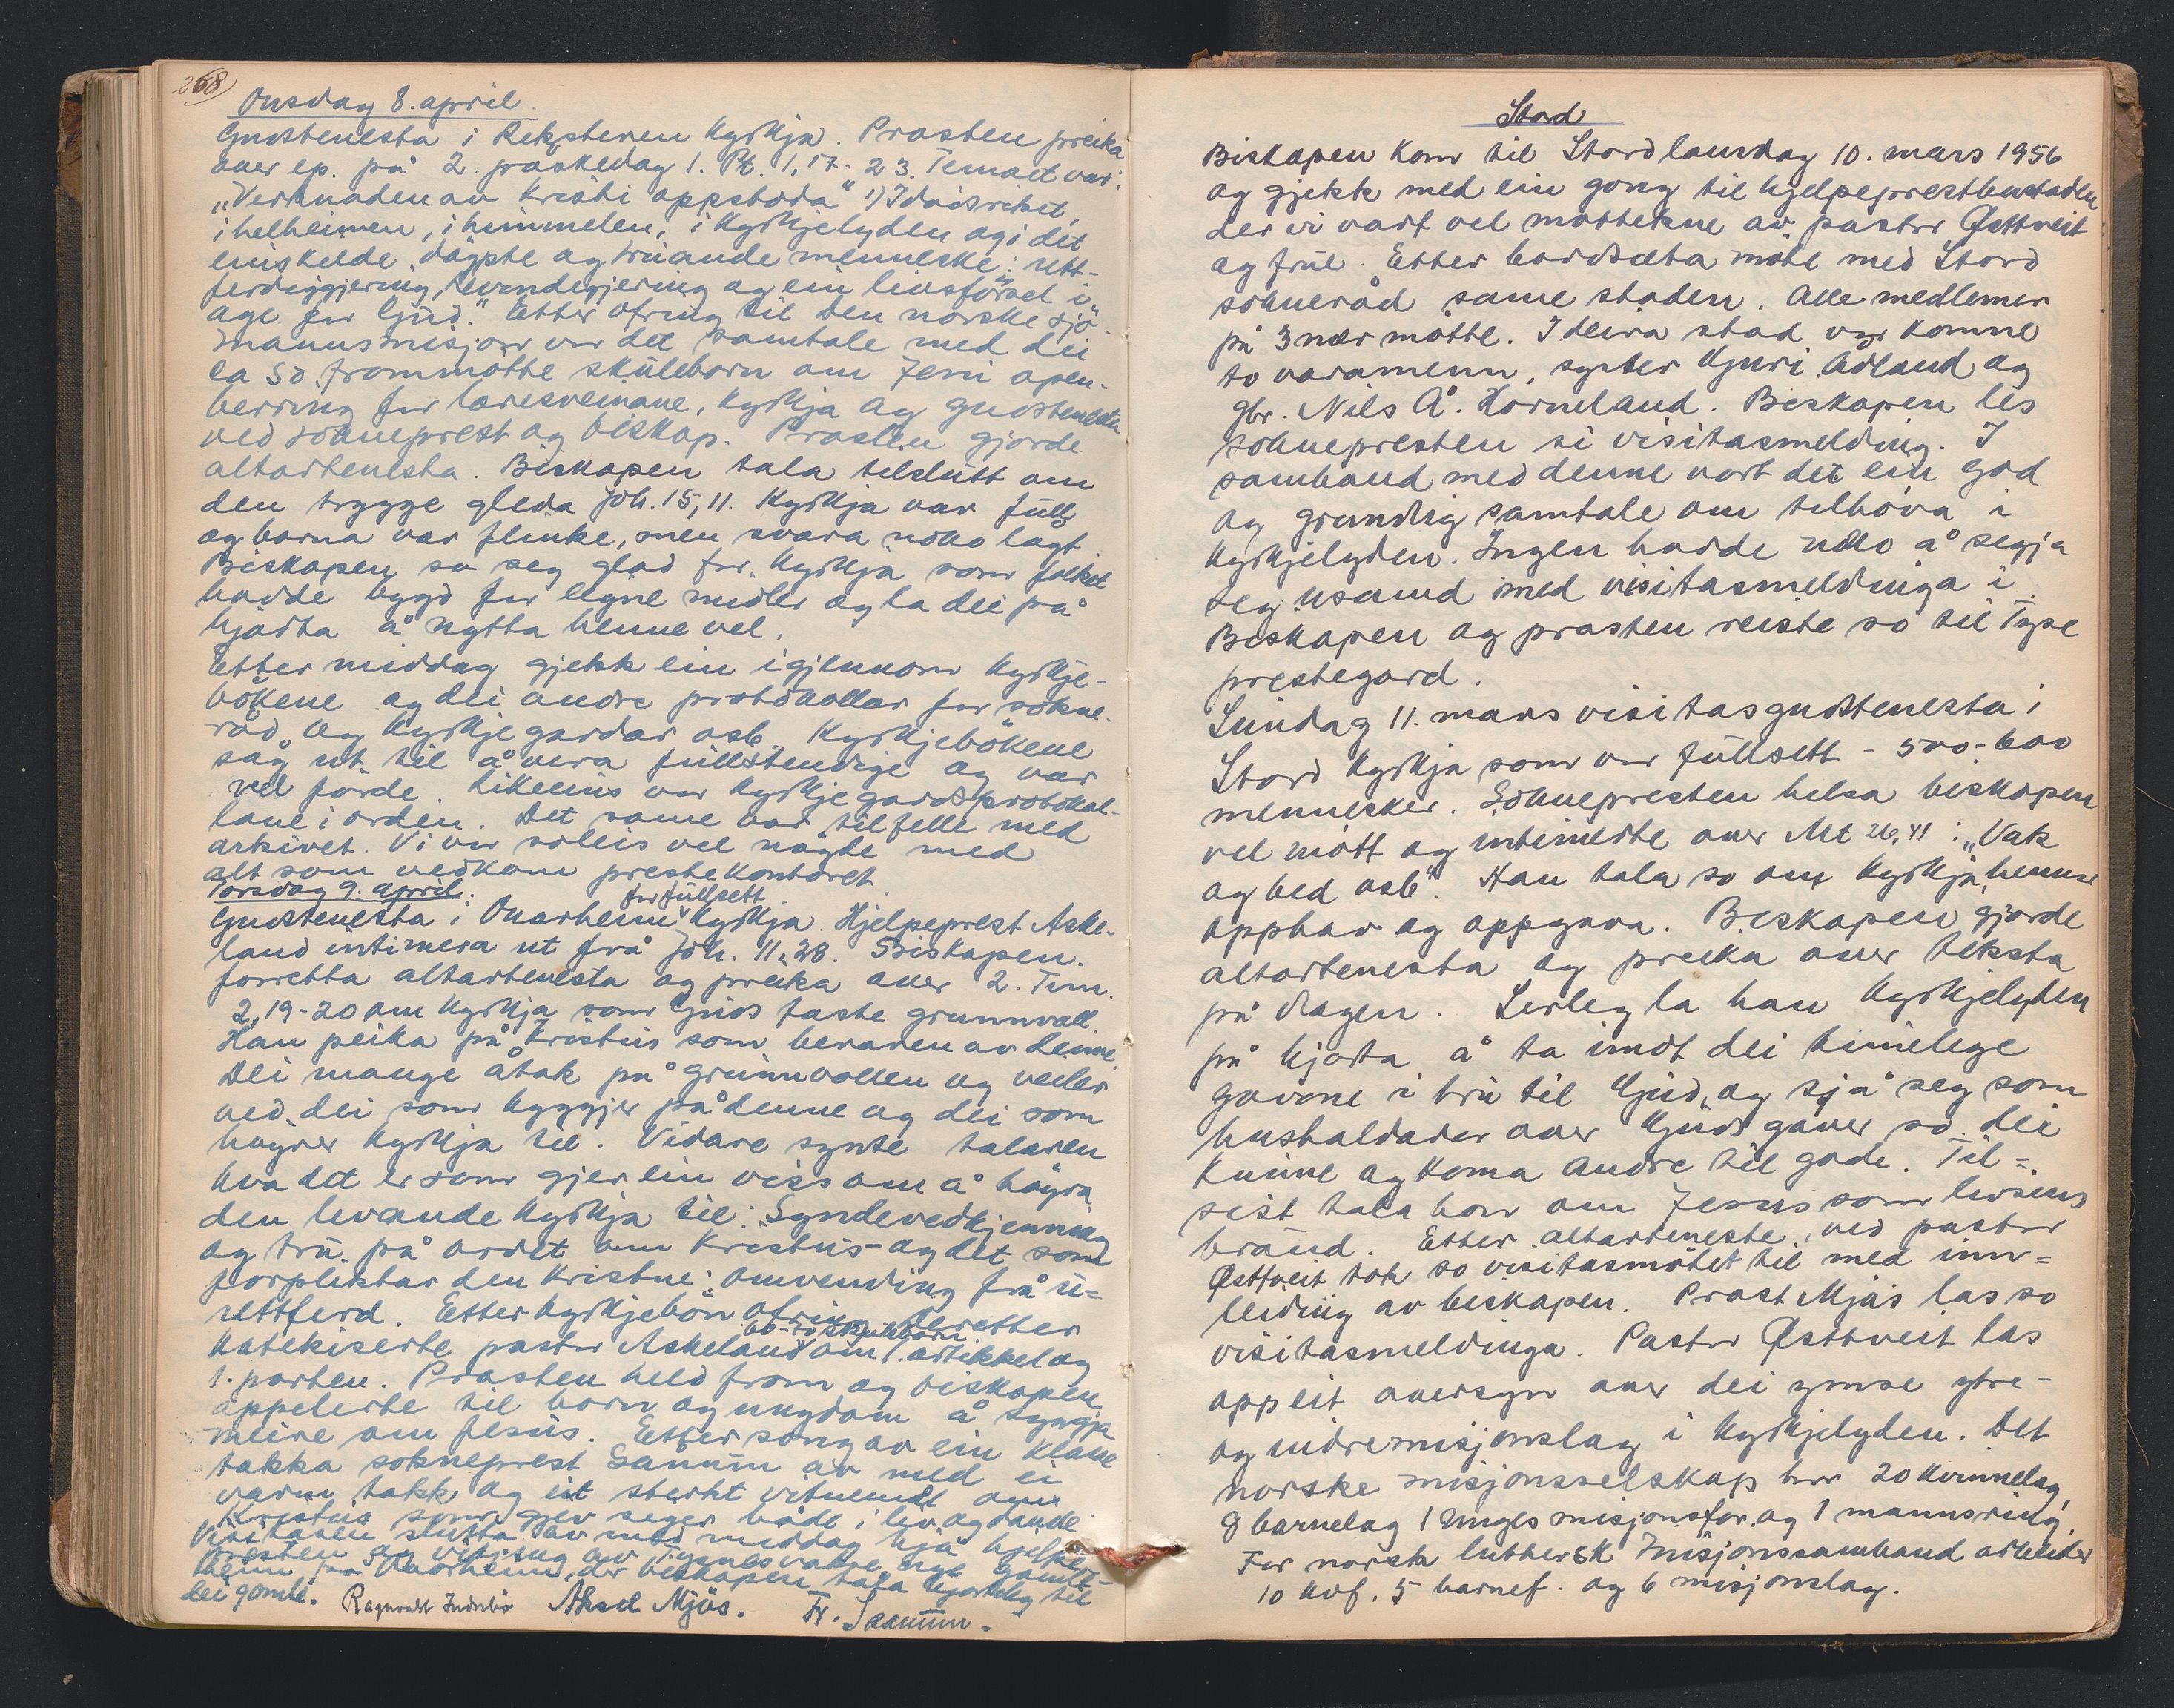 268)
Onsdag 8. april.
Gudstenesta i Reksteren kyrkja. Prosten preika
over ep. på 2. påskedag 1. Pt. 1, 17-23. Temaet var:
„Verknaden av Kristi oppstoda" 1) I daisriket,
i helheimen, i himmelen, i kyrkjelyden og i det
einskilde døypte og truande menneske: rett-
ferdiggjering, levendegjering og ein livsførsel i
age for Gud." Etter ofring til Den norske sjø-
mannsmisjon var det samtale med dei
ca 50 frammøtte skuleborn om Jesu open-
berring for læresveinane, kyrkja og gudstenesta
ved sokneprest og biskop. Prosten gjorde
altartenesta. Biskopen tala tilslutt om
den trygge gleda Joh. 15, 11. Kyrkja var full
og borna var flinke, men svara noko lågt.
Biskopen sa seg glad for kyrkja som folket
hadde bygd for eigne midler og la dei på
hjarta å nytta henne vel.
Etter middag gjekk ein igjennom kyrkje-
bøkene og dei andre protokollar for sokne-
råd og kyrkjegardar osb. Kyrkjebøkene
såg ut til å vera fullstendige og var
vel førde. Likeeins var kyrkjegardsprotokol-
lane i orden. Det same var tilfelle med
arkivet. Vi var soleis vel nøgde med
alt som vedkom prestekontoret.
Torsdag 9. april.
for fullsett
Gudstenesta i Onarheim kyrkja. Hjelpeprest Aske-
land intimera ut frå Joh. 11, 28. Biskopen
forretta altartenesta og preika over 2. Tim.
2, 19-20 om kyrkja som Guds faste grunnvoll.
Han peika på Kristus som beraren av denne
Dei mange åtak på grunnvollen og veiler
ved dei som byggjer på denne og dei som
høyrer kyrkja til. Vidare synte talaren
kva det er som gjer ein viss om å høyra
den levande kyrkja til: „Syndevedkjenning
og tru på ordet om Kristus - og det som
forpliktar den kristne: omvending frå u=
rettferd. Etter kyrkjebøn ofring. Deretter
60-70 skuleborn
katekiserte pastor Askeland om 1. artikkel og
1. parten. Prosten held fram og biskopen
appelerte til born og ungdom å syngja
meire om Jesus. Etter song av ein klasse
takka sokneprest Sanum av med ei
varm takk og eit sterkt vitnemål om
Kristus som gjev siger både i liv og daude
Visitasen slutta av med middag hjå hjelpe-
presten og vitjing av Tysnes vakre nye gamle-
heim på Onarheim, der biskopen tala hjarteleg til
dei gamle. Ragnvald Indrebø Aksel Mjös. Fr. Saanum.
Stord
Biskopen kom til Stord laurdag 10. mars 1956
og gjekk med ein gong til hjelpeprestbustaden
der vi vart vel mottekne av pastor Østtveit
og frue. Etter bordsæta møte med Stord
sokneråd same staden. Alle medlemer
på 3 nær møtte. I deira stad var komne
to varamenn, syster Guri Ådland og
gbr. Nils Å. Horneland. Biskopen les
soknepresten si visitasmelding. I
samband med denne vart det ein god
og grundig samtale om tilhøva i
kyrkjelyden. Ingen hadde noko å segja
seg usamd med visitasmeldinga i.
Biskopen og prosten reiste so til Tyse
prestegard.
Sundag 11. mars visitasgudstenesta i
Stord kyrkja som var fullsett - 500-600
mennesker. Soknepresten helsa biskopen
vel møtt og intimerte over Mt 26,41: „Vak
og bed osb". Han tala so om kyrkja, hennar
opphav og oppgåva. Biskopen gjorde
altartenesta og preika over teksta
på dagen. Serleg la han kyrkjelyden
på hjarta å ta imot dei timelege
gavone i tru til Gud, og sjå seg som
hushaldarar over Guds gåver so dei
kunne og koma andre til gode. Til=
sist tala han om Jesus som livsens
braud. Etter altarteneste ved pastor
Østtveit tok so visitasmøtet til med inn=
leiding av biskopen. Prost Mjøs las so
visitasmeldinga. Pastor Østtveit las
opp eit oversyn over dei ymse ytre-
og indremisjonslag i kyrkjelyden. Det
norske misjonsselskap har 20 kvinnelag,
8 barnelag 1 Unges misjonsfor. og 1 mannsring.
For norsk luthersk Misjonssamband arbeider
10 kvf. 5 barnef. og 6 misjonslag.